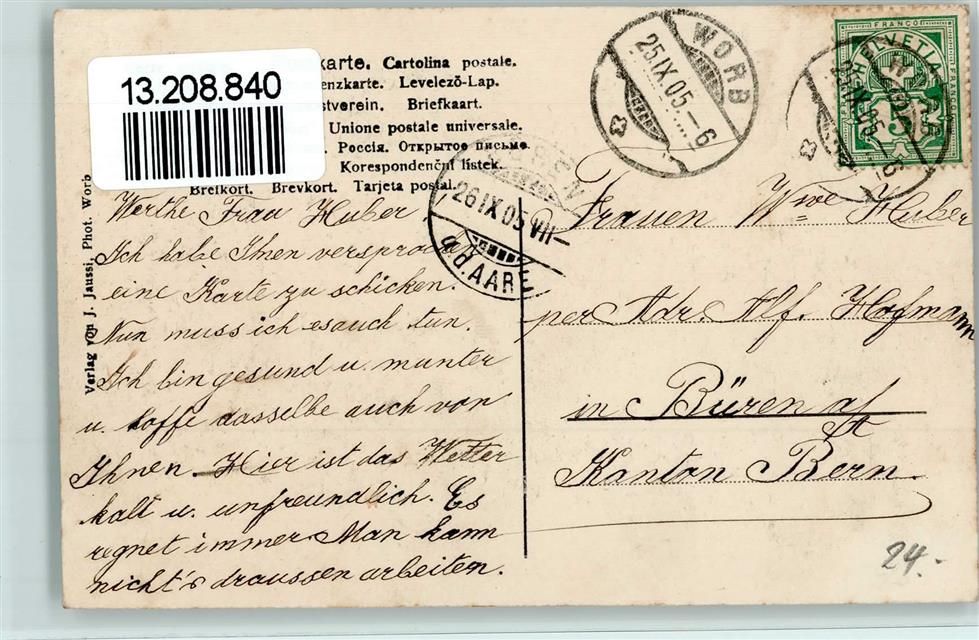 13.208.840
karte. Cartolina postale.
enzkarte. Levelező-Lap.
stverein. Briefkaart.
Unione postale universale.
Россіа. Открытое письмо.
Korespondenční lístek.
Brefkort. Brevkort. Tarjeta postal.
Verlag von J. Jaussi, Phot. Worb
WORB
25.IX.05.-6
FRANCO
HELVETIA
5
26.IX.05.VII-
a.d.AARE
Werthe Frau Huber
Ich habe Ihnen versproch
eine Karte zu schicken.
Nun muss ich es auch tun.
Ich bin gesund u. munter
u. hoffe dasselbe auch von
Ihnen. Hier ist das Wetter
kalt u. unfreundlich. Es
regnet immer. Man kann
nicht's draussen arbeiten.
Frauen Wwe Huber
per Adr. Alf. Hofmann
in Büren a/
Kanton Bern.
24.-